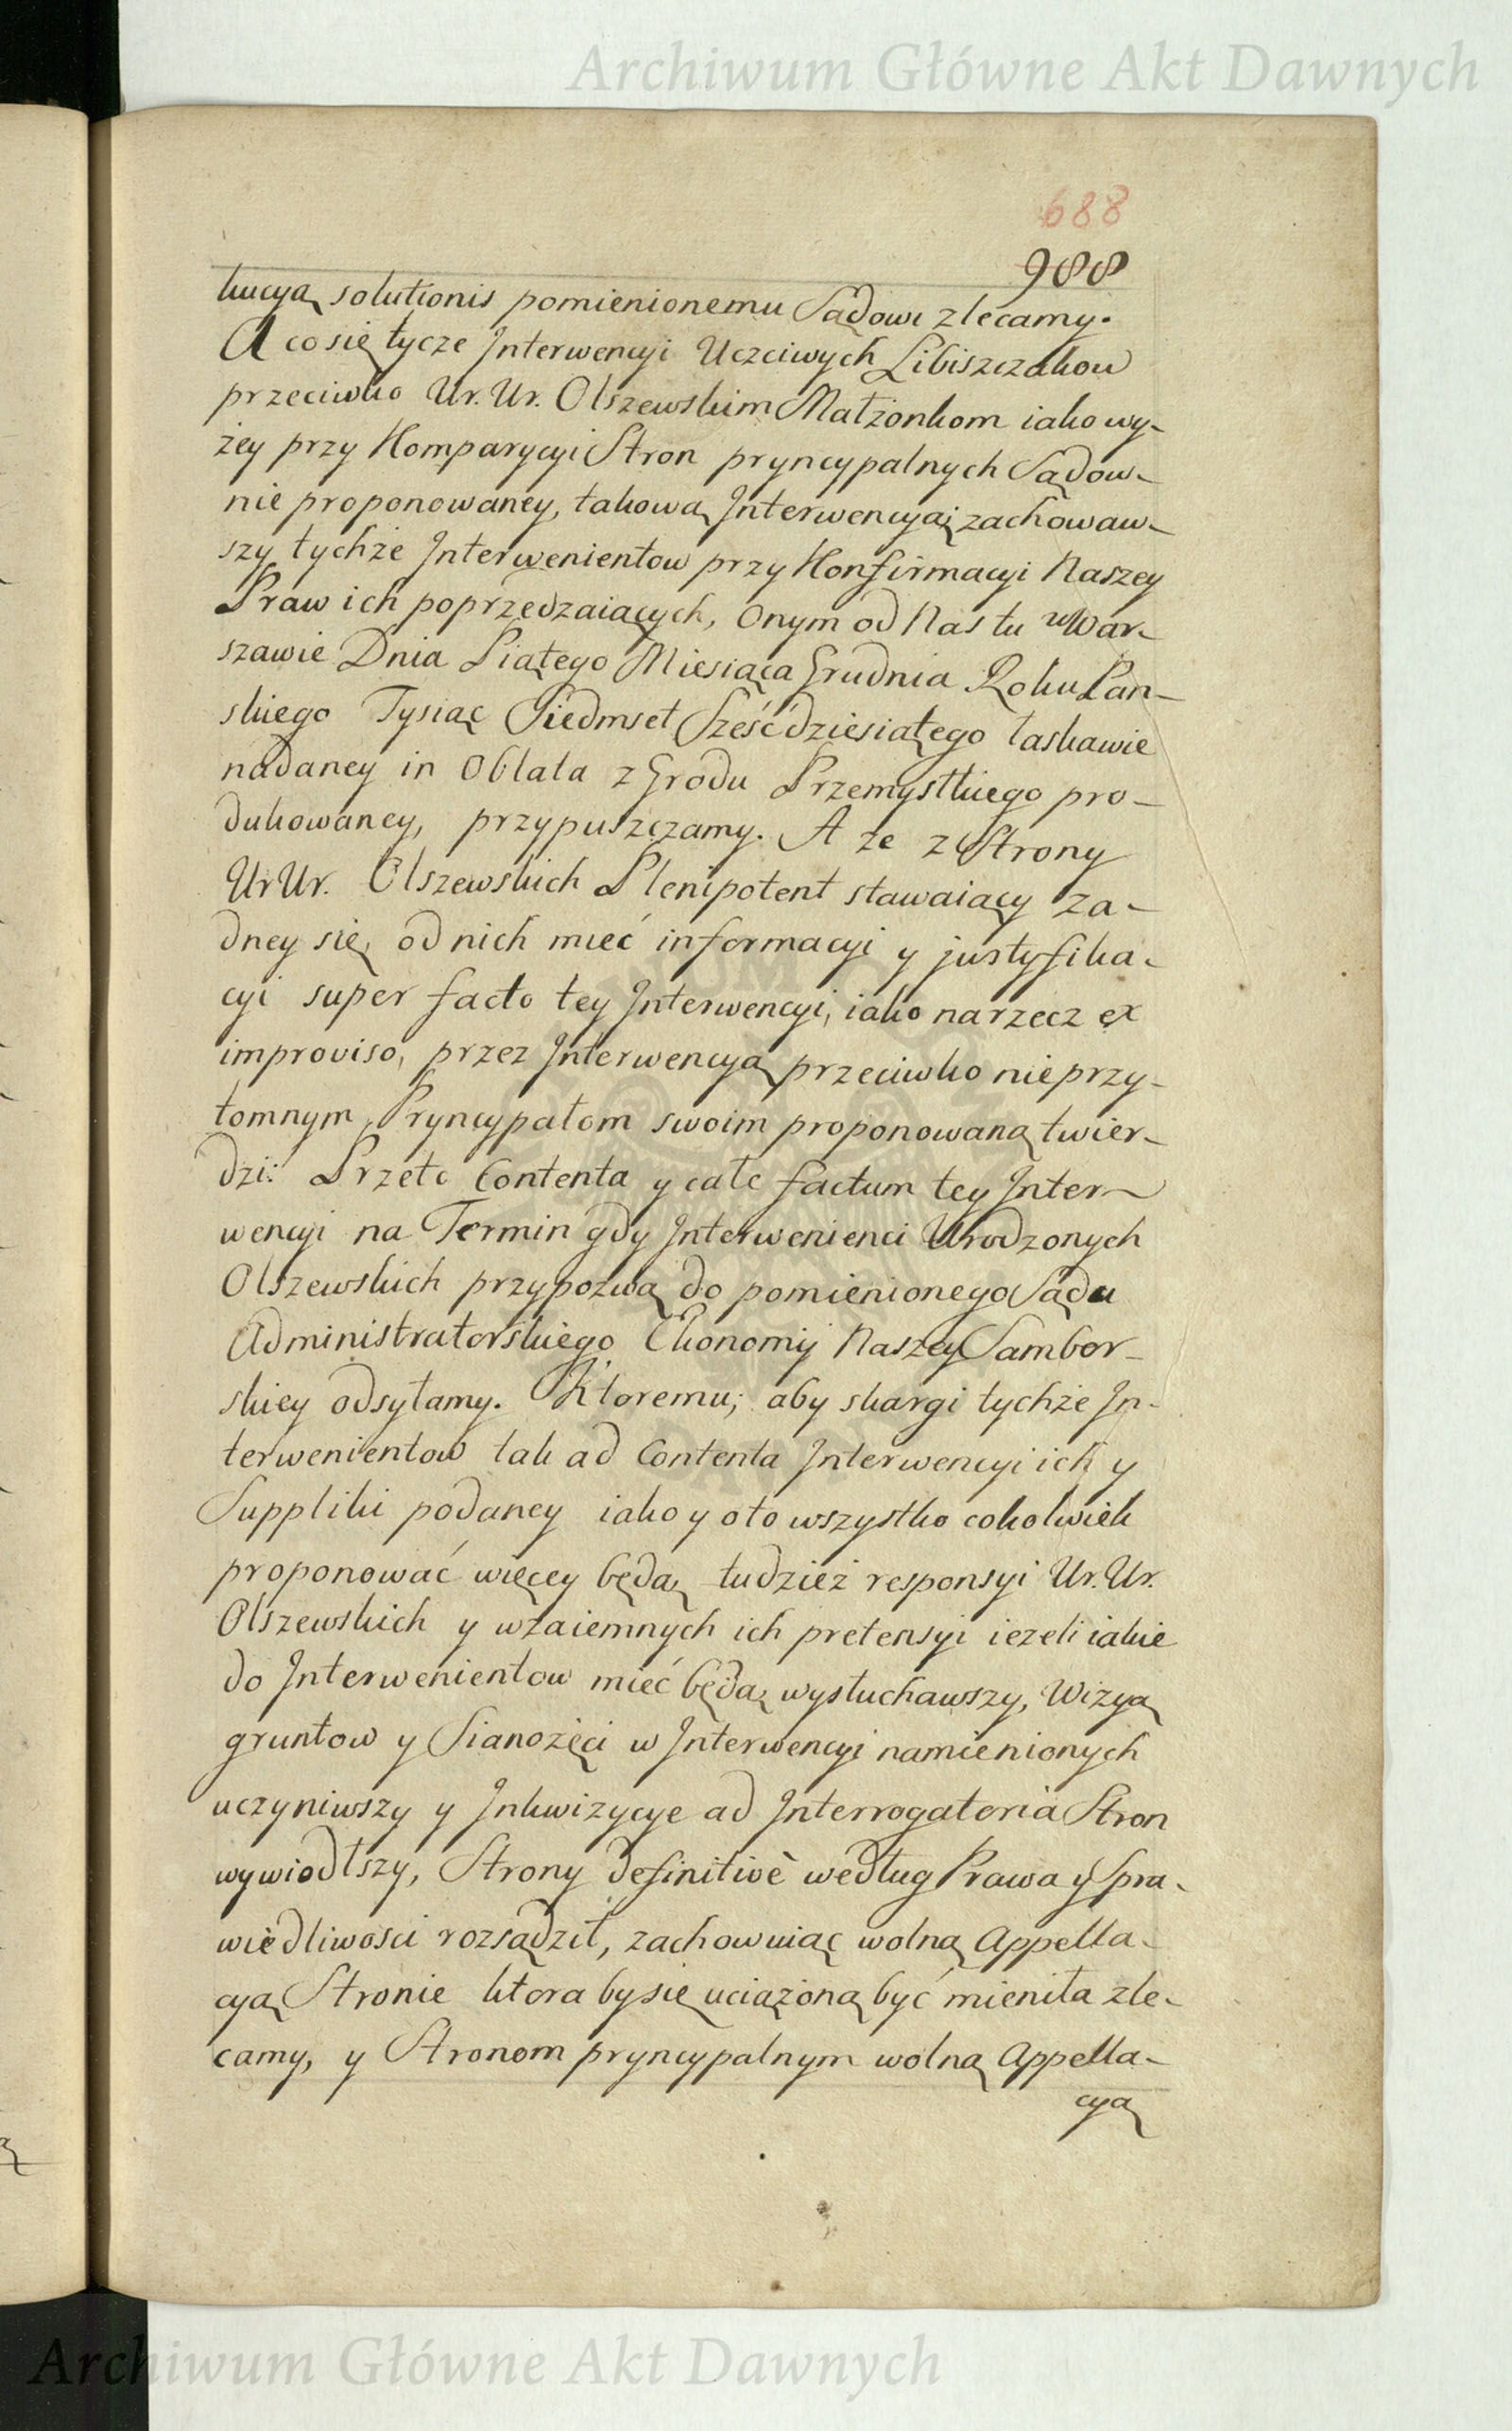 Archiwum Główne Akt Dawnych
688
988
kucyą solutionis pomienionemu Sądowi zlecamy.
A co się tycze Interwencyi Uczciwych Libiszczakow
przeciwko Ur. Ur. Olszewskim Małżonkom iako wy-
żey przy Komparycyi Stron pryncypalnych Sądow-
nie proponowaney, takową Interwencyą; zachowaw-
szy tychże Interwenientow przy Konfirmacyi Naszey
Praw ich poprzedzaiących, onym od Nas tu w War-
szawie Dnia Piątego Miesiąca Grudnia Roku Pan-
skiego Tysiąc Siedmset Sześćdziesiątego łaskawie
nadaney in Oblata z Grodu Przemyslkiego pro-
dukowaney, przypuszczamy. A że z Strony
Ur Ur. Olszewskich Plenipotent stawaiący ża-
dney się od nich mieć informacyi y justyfika-
cyi super facto tey Interwencyi, iako na rzecz ex
improviso, przez Interwencyą przeciwko nieprzy-
tomnym Pryncypałom swoim proponowaną twier-
dzi: Przeto Contenta y całe factum tey Inter-
wencyi na Termin gdy Interwenienci Urodzonych
Olszewskich przypozwą do pomienionego Sądu
Administratorskiego Ekonomij Naszey Sambor-
skiey odsyłamy. Ktoremu; aby skargi tychże In-
terwenientow tak ad Contenta Interwencyi ich y
Suppliki podaney iako y oto wszystko cokolwiek
proponować więcey będą, tudzież responsyi Ur. Ur.
Olszewskich y wzaiemnych ich pretensyi ieżeli iakie
do Interwenientow mieć będą, wysłuchawszy, Wizyą
gruntow y Sianożęci w Interwencyi namienionych
uczyniwszy y Inkwizycye ad Interrogatoria Stron
wywiodłszy, Strony definitivè według Prawa y Spra-
wiedliwosci rozsądził, zachowuiąc wolną Appella-
cyą Stronie ktora by się uciążoną być mieniła zle-
camy, y Stronom pryncypalnym wolną Appella-
cyą
Archiwum Główne Akt Dawnych